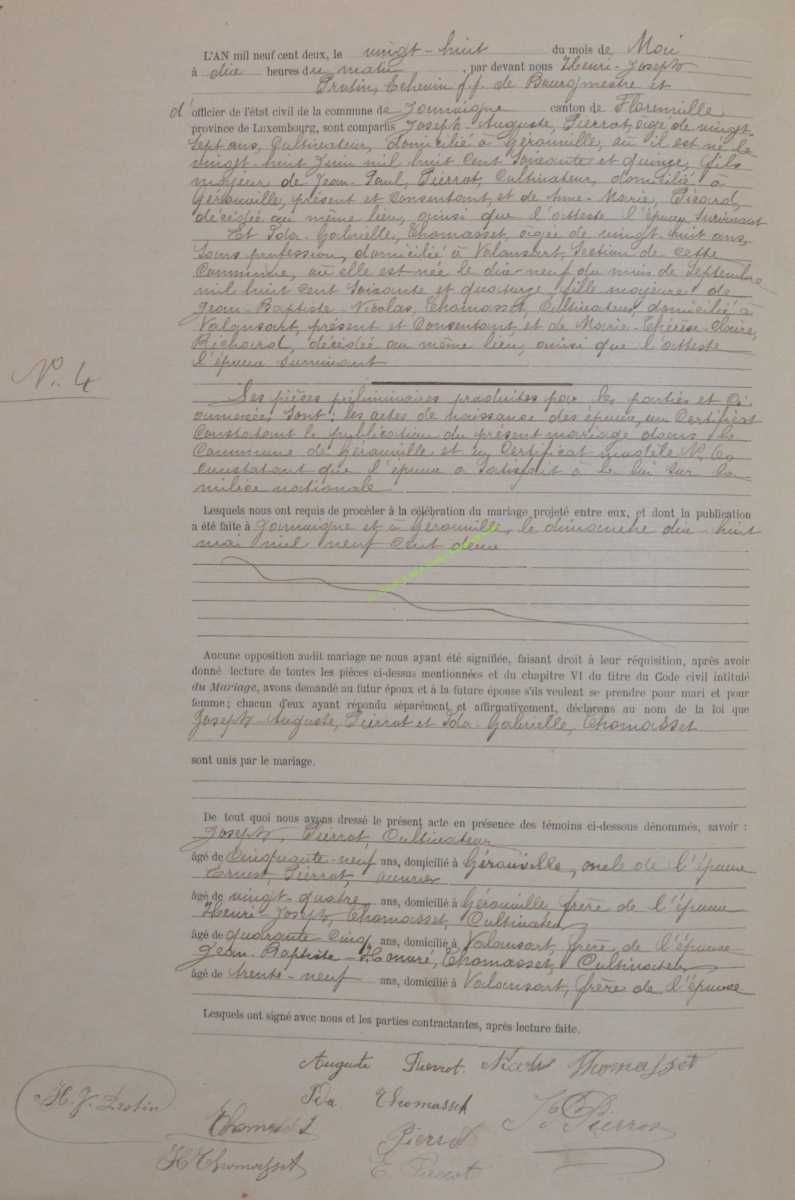 L'AN mil neuf cent deux, le vingt-huit du mois de Mai
à dix heures du matin, par devant nous Henri-Joseph
Protin, Echevin f.f. de Bourgmestre et
d'officier de l'état civil de la commune de Jamoigne canton de Florenville
province de Luxembourg, sont comparus Joseph-Auguste, Pierrot, âgé de vingt-
sept ans, Cultivateur, domicilié à Gérouville, où il est né le
vingt-huit Juin mil huit cent soixante et quinze, fils
majeur de Jean-Paul, Pierrot, Cultivateur, domicilié à
Gérouville, présent et consentant, et de Anne-Marie, Picard,
décédée au même lieu, ainsi que l'atteste l'époux survivant
Et Ida-Gabrielle, Thomasset, agée de vingt-huit ans,
sans profession, domiciliée à Valansart, section de cette
Commune, où elle est née le dix-neuf du mois de Septembre
mil huit cent soixante et quatorze, fille majeure de
Jean-Baptiste-Nicolas, Thomasset, Cultivateur, domicilié à
Valansart, présent et consentant, et de Marie-Thérèse-Claire,
Richard, décédée au même lieu, ainsi que l'atteste
l'époux survivant
N° 4
Les pièces préliminaires produites par les parties et
annexées, sont: les actes de naissance des époux, un Certificat
constatant la publication du présent mariage dans la
Commune de Gérouville et un Certificat modèle N°
constatant que l'époux a satisfait à la loi sur la
milice nationale
Lesquels nous ont requis de procéder à la célébration du mariage projeté entre eux, et dont la publication
a été faite à Jamoigne et à Gérouville, le dimanche dix-huit
mai mil neuf cent deux
Aucune opposition audit mariage ne nous ayant été signifiée, faisant droit à leur réquisition, après avoir
donné lecture de toutes les pièces ci-dessus mentionnées et du chapitre VI du titre du Code civil intitulé
du Mariage, avons demandé au futur époux et à la future épouse s'ils veulent se prendre pour mari et pour
femme; chacun d'eux ayant répondu séparément et affirmativement, déclarons au nom de la loi que
Joseph-Auguste, Pierrot et Ida-Gabrielle, Thomasset
sont unis par le mariage.
De tout quoi nous ayons dressé le présent acte en présence des témoins ci-dessous dénommés, savoir :
Joseph, Pierrot Cultivateur
âgé de Cinquante-neuf ans, domicilié à Gérouville, oncle de l'époux
Ernest, Pierrot, ouvrier
âgé de vingt-quatre ans, domicilié à Gérouville frère de l'époux
Henri-Joseph, Thomasset, Cultivateur
âgé de quarante-cinq ans, domicilié à Valansart, frère de l'épouse
Jean-Baptiste-Honoré, Thomasset, Cultivateur
âgé de trente-neuf ans, domicilié à Valansart, frère de l'épouse
Lesquels ont signé avec nous et les parties contractantes, après lecture faite.
Auguste Pierrot. Nicolas Thomasset
H. J. Protin Ida Thomasset J. P. Pierrot
Thomasset Pierrot
H Thomasset E. Pierrot